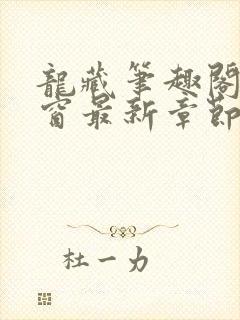 龍藏筆趣閣
窗最新章節
杜一力